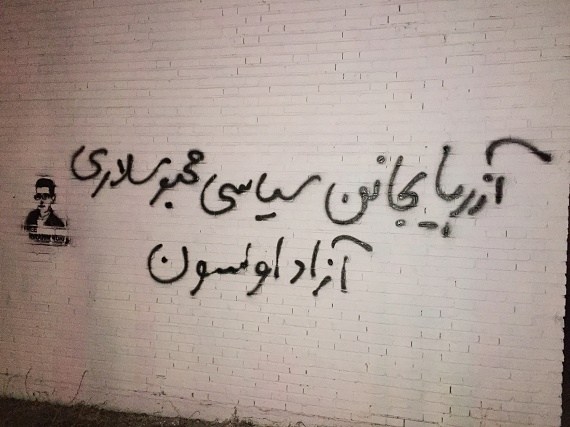 آذربایجانن سیاسی محبوسلاری
آزاد اولسون